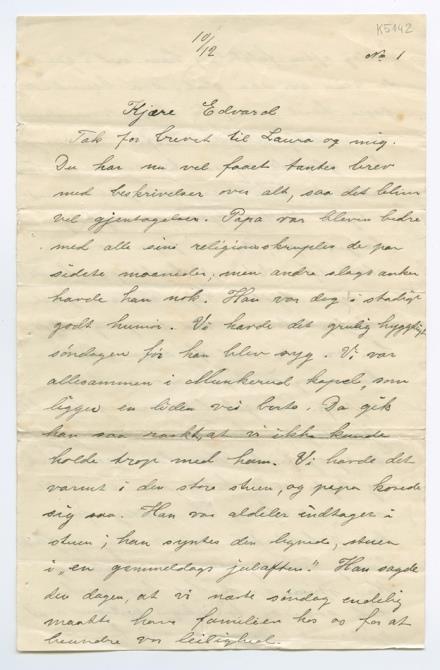 K5142
10/12
No 1
Kjære Edvard
Tak for brevet til Laura og mig.
Du har nu vel faaet tantes brev
med beskrivelser over alt, saa det bliver
vel gjentagelser. Papa var bleven bedre
med alle sine religiønsskrupler de par
sidste maaneder, men andre slags anker
havde han nok. Han var dog i stadigt
godt humør. Vi havde det grulig hyggeligt
søndagen før han blev syg. Vi var
allesammen i Munkerud kapel, som
ligger en liden vei borte. Da gik
han saa raskt, at vi ikke kunde
holde trop med ham. Vi havde det
varmt i den store stuen, og papa kosede
sig saa. Han var aldeles indtaget i
stuen; han syntes den lignede stuen
i „en gammeldags juleaften.” Han sagde
den dagen, at vi næste søndag endelig
maatte have familien hos os for at
beundre vor leilighed.